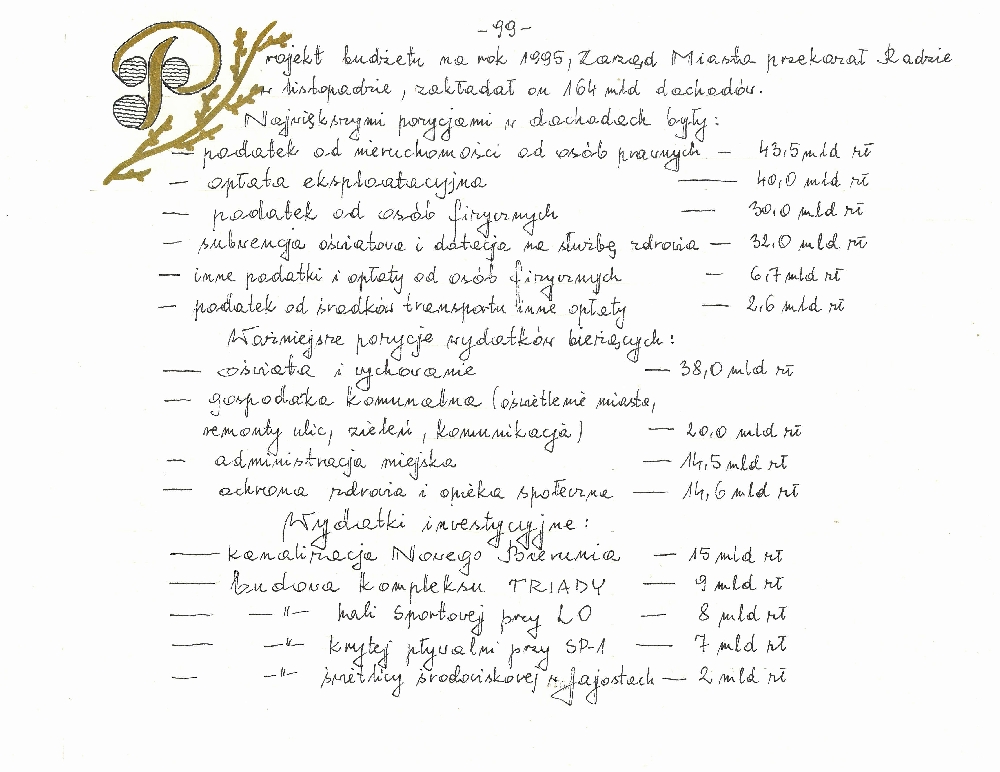 -99-
Projekt budżetu na rok 1995, Zarząd Miasta przekazał Radzie
w listopadzie, zakładał on 164 mld dochodów.
Największymi pozycjami w dochodach były:
— podatek od nieruchomości od osób prawnych — 43,5 mld zł
— opłata eksploatacyjna — 40,0 mld zł
— podatek od osób fizycznych — 30,0 mld zł
— subwencja oświatowa i dotacja na służbę zdrowia — 32,0 mld zł
— inne podatki i opłaty od osób fizycznych — 6,7 mld zł
— podatek od środków transportu inne opłaty — 2,6 mld zł
Ważniejsze pozycje wydatków bieżących:
— oświata i wychowanie — 38,0 mld zł
— gospodaka komunalna (oświetlenie miasta,
remonty ulic, zieleń, komunikacja) — 20,0 mld zł
— administracja miejska — 14,5 mld zł
— ochrona zdrowia i opieka społeczna — 14,6 mld zł
Wydatki inwestycyjne:
— kanalizacja Nowego Bierunia — 15 mld zł
— budowa kompleksu TRIADY — 9 mld zł
— —"— hali sportowej przy LO — 8 mld zł
— —"— krytej pływalni przy SP-1 — 7 mld zł
— —"— świetlicy środowiskowej w Jajostach — 2 mld zł